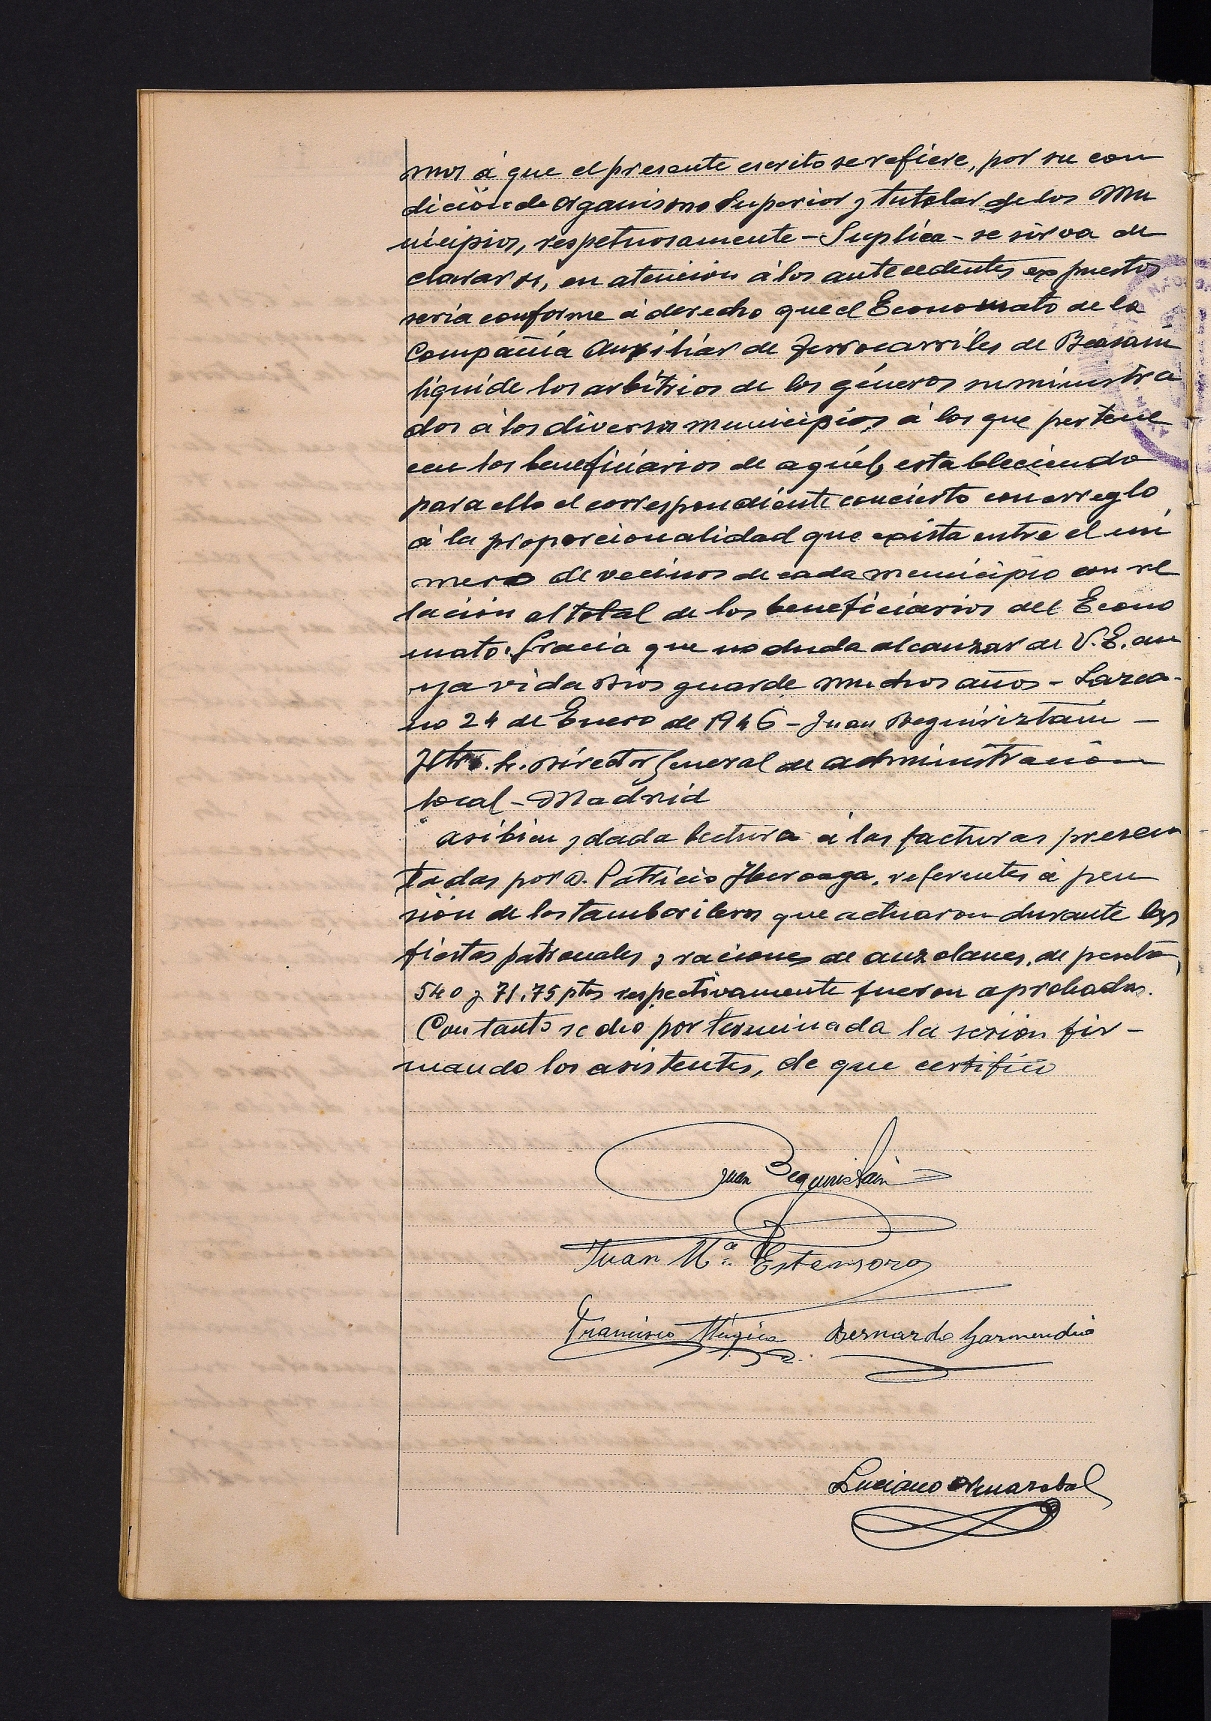 mos á que el presente escrito se refiere, por su con
dición de Organismo Superior y tutelar de los Mu
nicipios, respetuosamente - Suplica - se sirva de
clarar si, en atención á los antecedentes expuestos
sería conforme á derecho que el Economato de la
Compañía Auxiliar de Ferrocarriles de Beasain
liquide los arbitrios de los géneros suministra
dos á los diversos municipios á los que pertene
cen los beneficiarios de aquél, estableciendo
para ello el correspondiente concierto con arreglo
á la proporcionalidad que exista entre el nú
mero de vecinos de cada municipio con re
lación al total de los beneficiarios del Econo
mato. Gracia que no duda alcanzar de V.E. cu
ya vida Dios guarde muchos años - Lazca-
no 24 de Enero de 1946 - Juan Beguiriztain -
Iltmo. Sr. Director General de administración
local - Madrid
asi bien y dada lectura á las facturas presen
tadas por D. Patricio, referentes á pen
sión de los tamborileros que actuaron durante las
fiestas patronales y raciones de, de pesetas
540 y 71,75 pts respectivamente fueron aprobadas.
Con tanto se dio por terminada la sesión fir-
mando los asistentes, de que certifico
Juan Beguiristain
Juan Mª. Estensoro
Francisco Múgica Bernardo Garmendia
Luciano